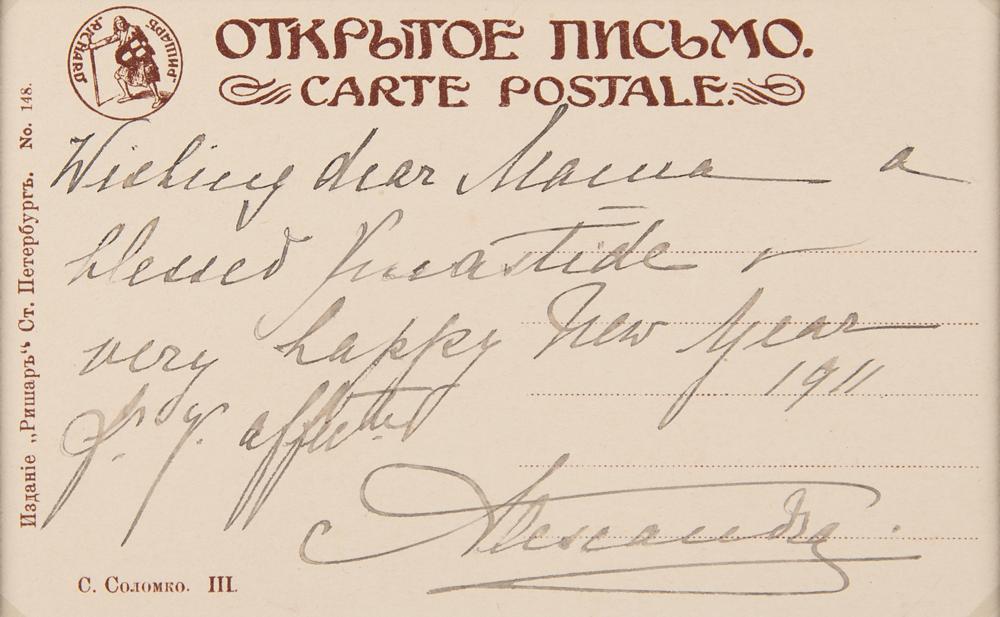 RICHARD
РИШАРЪ
ОТКРЫТОЕ ПИСЬМО.
CARTE POSTALE.
Изданіе „Ришаръ“ Ст. Петербургъ. No. 148.
Wishing dear Mama a
blessed Xmastide &
very happy New Year
1911
Alexandra.
С. Соломко. III.